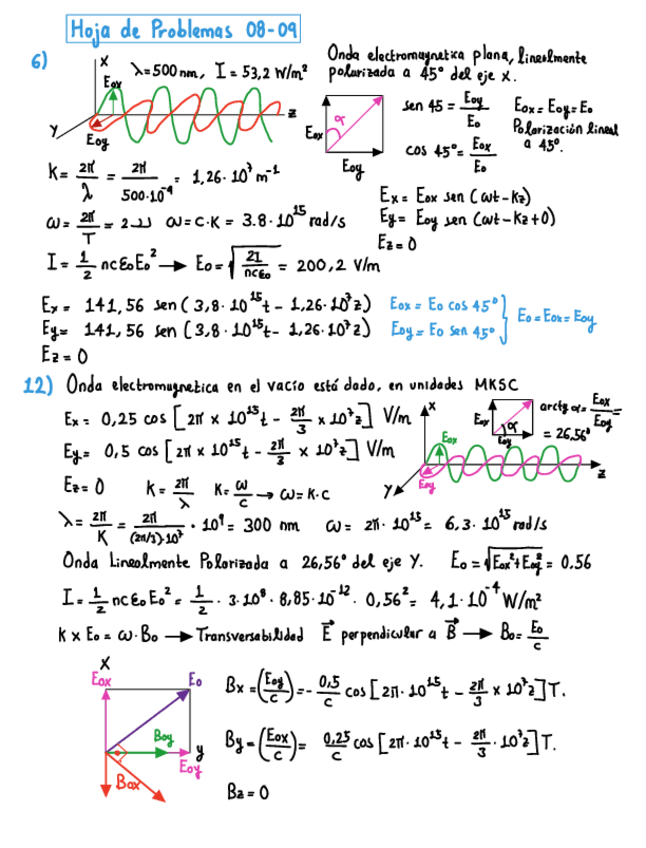 Hoja de Problemas 08-09
6)
x
Eox
y
Eoy
z
λ=500nm, I = 53,2 W/m²
Onda electromagnetica plana, linealmente
polarizada a 45° del eje x.
Eox
α
Eoy
sen 45 = Eoy/Eo
cos 45° = Eox/Eo
Eox = Eoy = Eo
Polarización lineal
a 45°.
K = 2π/λ = 2π/500·10⁻⁹ = 1,26·10⁷ m⁻¹
ω = 2π/T = 2 ω = C·K = 3.8·10¹⁵ rad/s
I = 1/2 ncε₀E₀² → E₀ = √(2I/ncε₀) = 200,2 V/m
Ex = Eox sen (ωt - Kz)
Ey = Eoy sen (ωt - Kz + 0)
Ez = 0
Ex = 141,56 sen (3,8·10¹⁵t - 1,26·10⁷z)
Ey = 141,56 sen (3,8·10¹⁵t - 1,26·10⁷z)
Ez = 0
Eox = Eo cos 45°
Eoy = Eo sen 45°
} Eo = Eox = Eoy
12) Onda electromagnetica en el vacío está dado, en unidades MKSC
Ex = 0,25 cos [2π × 10¹⁵t - 2π/3 × 10⁷z] V/m
Ey = 0,5 cos [2π × 10¹⁵t - 2π/3 × 10⁷z] V/m
Ez = 0 K = 2π/λ K = ω/c → ω = K·C
x
Eox
Eoy
y
z
Eox
α
Eoy
arctg α = Eox/Eoy =
= 26,56°
λ = 2π/K = 2π/(2π/3)·10⁷ · 10⁹ = 300 nm ω = 2π·10¹⁵ = 6,3·10¹⁵ rad/s
Onda Linealmente Polarizada a 26,56° del eje Y. Eo = √(Eox² + Eoy²) = 0.56
I = 1/2 ncε₀E₀² = 1/2 · 3·10⁸ · 8,85·10⁻¹² · 0,56² = 4,1·10⁻⁴ W/m²
K × Eo = ω·Bo → Transversabilidad E⃗ perpendicular a B⃗ → Bo = Eo/c
x
Eox
Eo
Boy
y
Eoy
Box
Bx = (Eoy/c) = - 0,5/c cos [2π·10¹⁵t - 2π/3 × 10⁷z] T.
By = (Eox/c) = 0,25/c cos [2π·10¹⁵t - 2π/3 · 10⁷z] T.
Bz = 0